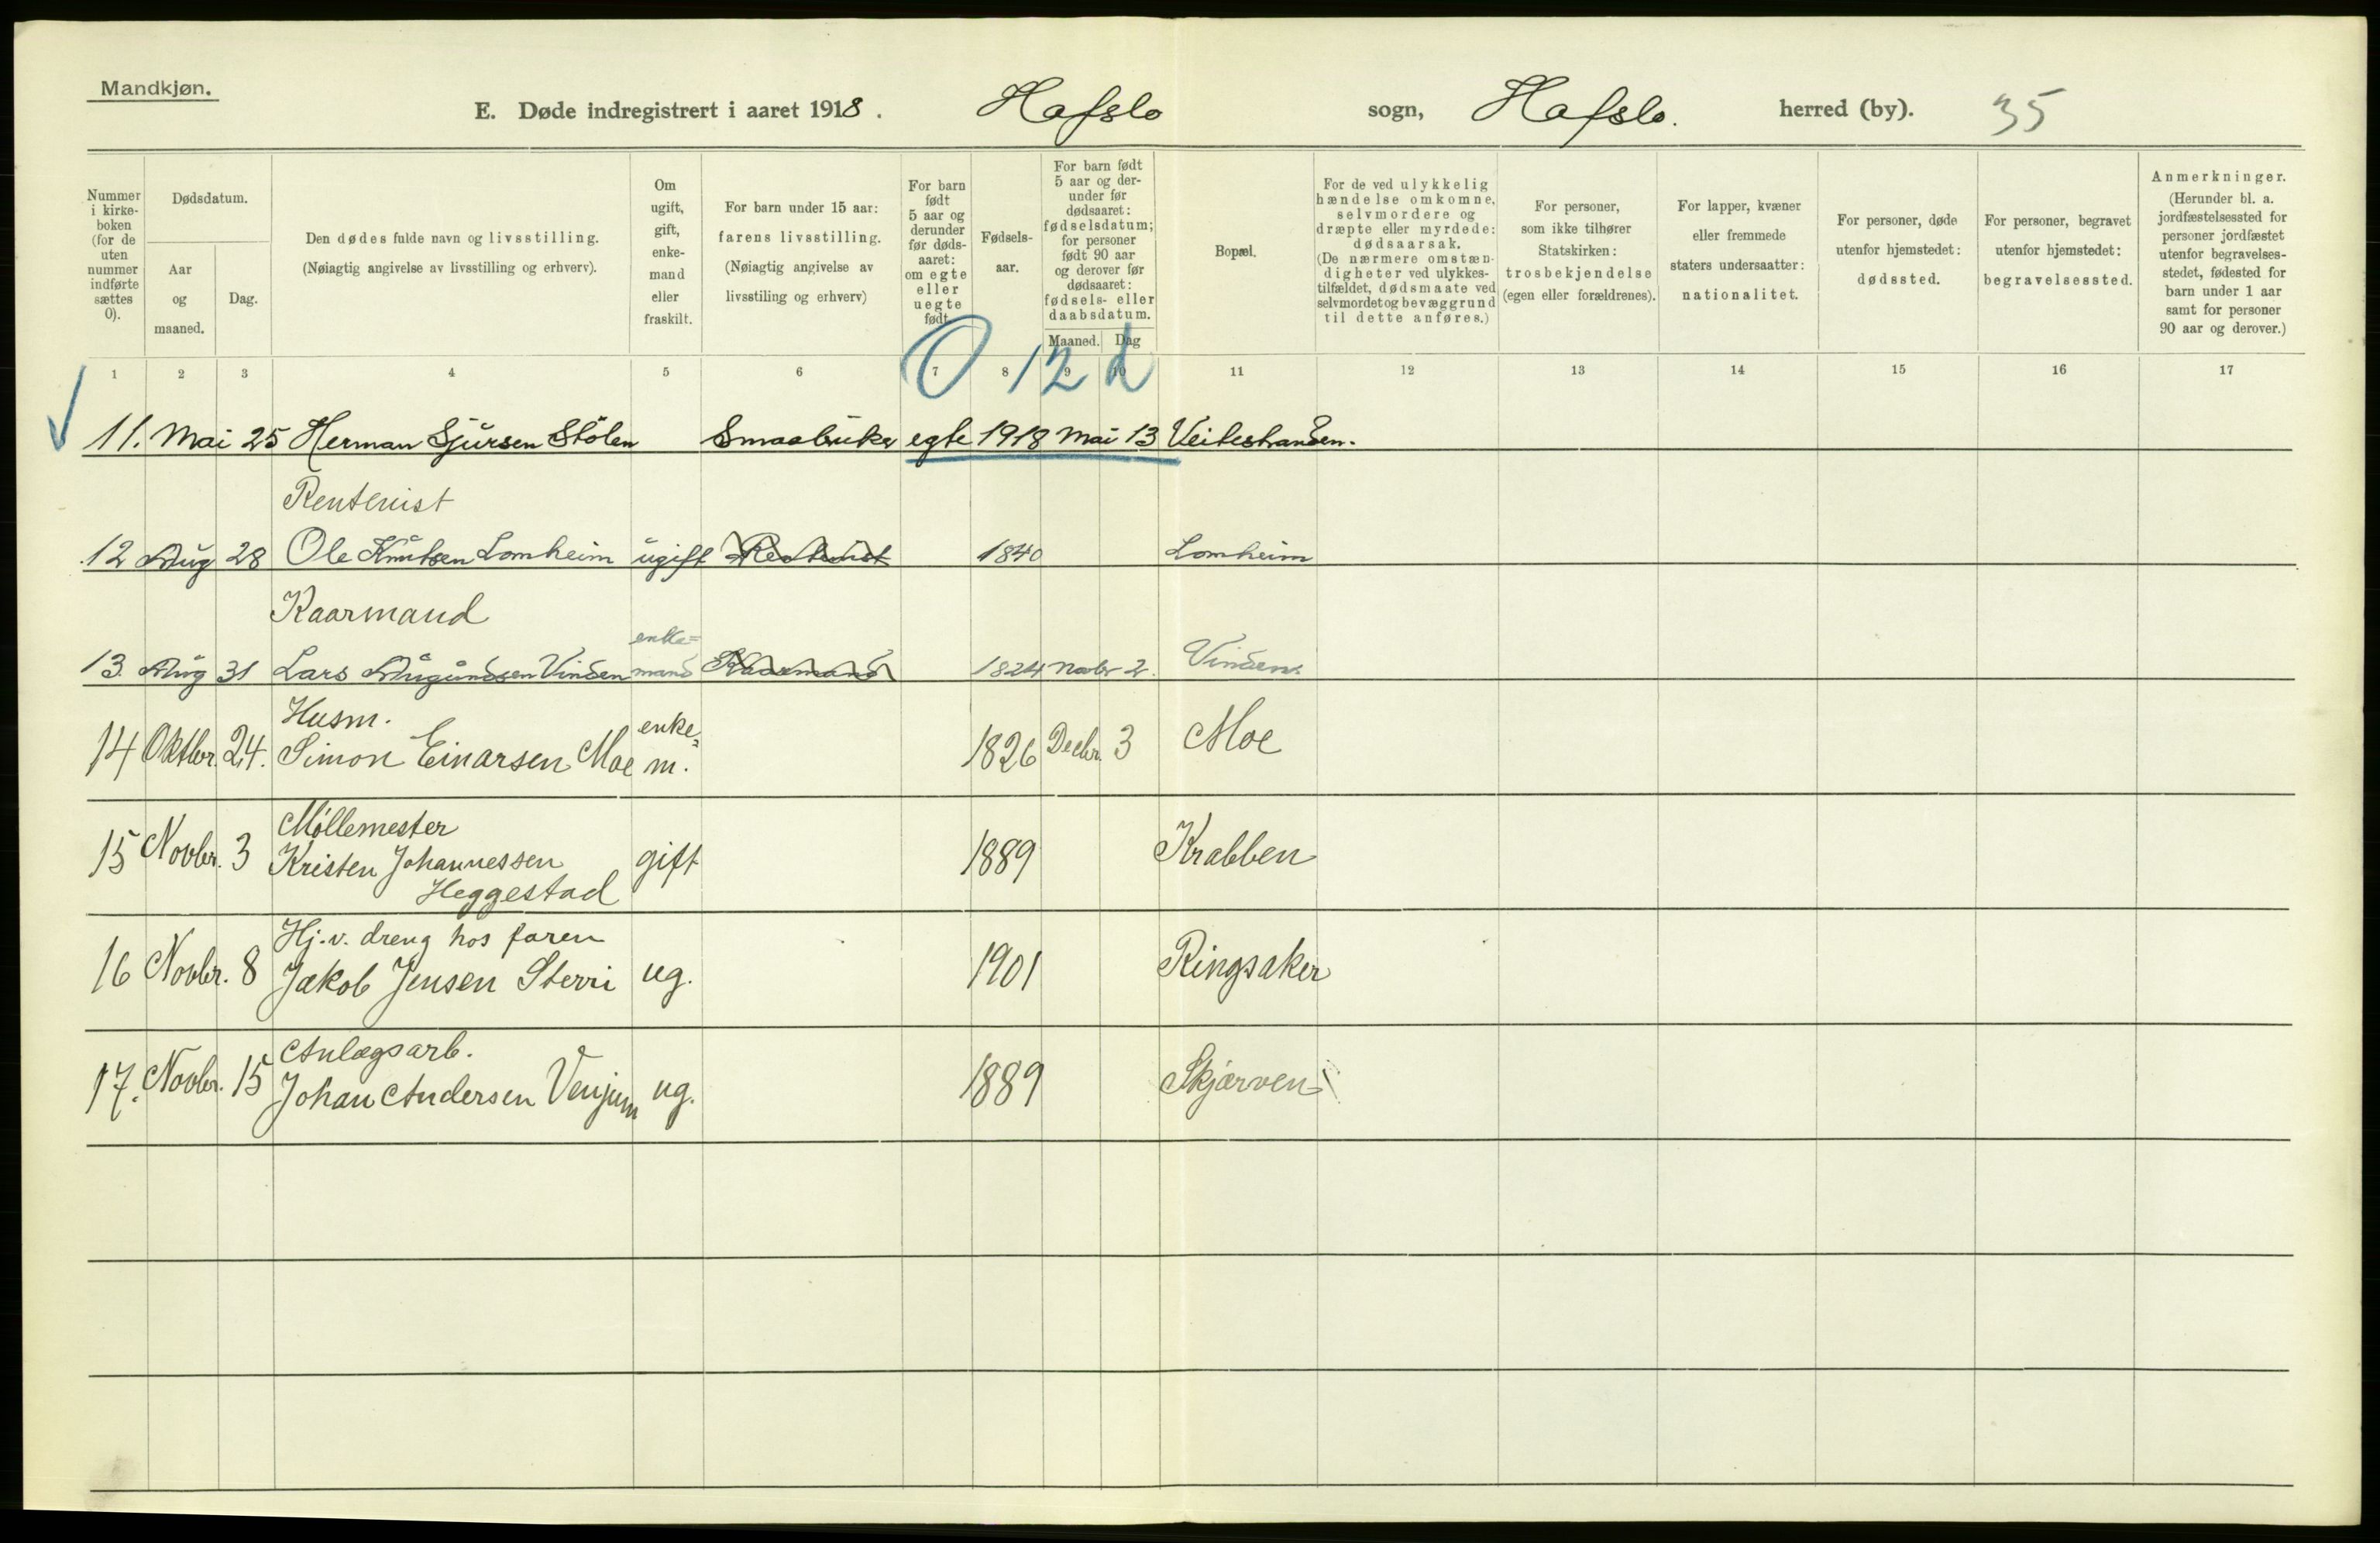 Mandkjøn.
E. Døde indregistrert i aaret 1918. Hafslo sogn, Hafslo. herred (by). 35
Nummer i kirke- boken (for de uten nummer indførte sættes 0).
Dødsdatum.
Aar og maaned.
Dag.
Den dødes fulde navn og livsstilling.
(Nøiagtig angivelse av livsstilling og erhverv).
Om ugift, gift, enke- mand eller fraskilt.
For barn under 15 aar: farens livsstilling.
(Nøiagtig angivelse av livsstiling og erhverv)
For barn født 5 aar og derunder før døds- aaret: om egte eller uegte født.
Fødsels- aar.
For barn født 5 aar og der- under før dødsaaret: fødselsdatum; for personer født 90 aar og derover før dødsaaret: fødsels- eller daabsdatum.
Maaned. Dag
Bopæl.
For de ved ulykkelig hændelse omkomne, selvmordere og dræpte eller myrdede: dødsaarsak.
(De nærmere omstæn- digheter ved ulykkes- tilfældet, dødsmaate ved selvmordet og bevæggrund til dette anføres.)
For personer, som ikke tilhører Statskirken: trosbekjendelse (egen eller forældrenes).
For lapper, kvæner eller fremmede staters undersaatter: nationalitet.
For personer, døde utenfor hjemstedet: dødssted.
For personer, begravet utenfor hjemstedet: begravelsessted.
Anmerkninger.
(Herunder bl. a. jordfæstelsessted for personer jordfæstet utenfor begravelses- stedet, fødested for barn under 1 aar samt for personer 90 aar og derover.)
1 2 3 4 5 6 7 8 9 10 11 12 13 14 15 16 17
0 12 d
11. Mai 25 Herman Sjursen Stölen Smaabruker egte 1918 Mai 13 Veitestranden.
Rentenist
12 Aug 28 Ole Knutsen Lomheim ugift Rentenist 1840 Lomheim
Kaarmand
enke=
13. Aug 31 Lars Augundsen Vinden mand Kaarmand 1824 Novbr 2. Vinden.
Husm. enke=
14 Oktbr. 24. Simon Einarsen Moe m. 1826 Decbr. 3 Moe
Møllemester
15 Novbr. 3 Kristen Johannessen gift 1889 Krabben
Heggestad
Hj.v. dreng hos faren
16 Novbr. 8 Jakob Jensen Sterri ug. 1901 Ringsaker
Anlægsarb.
17. Novbr. 15 Johan Andersen Venjum ug. 1889 Skjærven